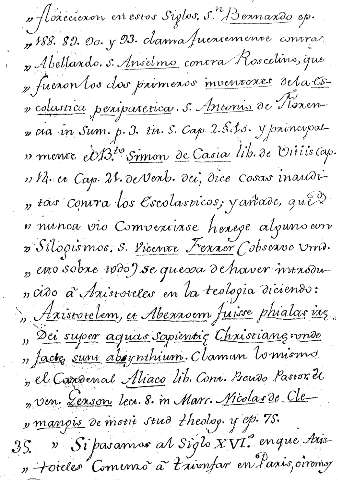 „ florecieron en estos Siglos. S.n Bernardo ep.
„ 188. 89. 90. y 93. clama fuertemente contra
„ Abellardo. S. Anselmo contra Roscelino, que
„ fueron los dos primeros inventores de la Es-
„ colastica peripatetica. S. Antonio de Floren-
„ cia in Sum. p. 3. tit. 5. Cap. 2. §. 15. y principal-
„ mente el B.to Simon de Casia lib. de Vitiis Cap.
„ 14. et Cap. 21. de Verb. dei, dice cosas inaudi-
„ tas contra los Escolasticos; y añade, que
„ nunca vio Convertirse herege alguno con
„ Silogismos. S. Vicente Ferrer (observe Vmd.
„ esto sobre todo) se quexa de haver introdu-
„ cido à Aristoteles en la teologia diciendo:
„ Aristotelem, et Aberroem fuisse phialas iræ
„ Dei super aquas Sapientię Christianę, unde
„ factę sunt absynthium. Claman lo mismo
„ el Cardenal Aliaco lib. Cont. Pseudo Pastor. el
„ ven. Gerson lect. 8. in Marc. Nicolas de Cle-
„ mangis de instit stud theolog. y ep. 75.
35. „ Si pasamos al Siglo XVI.º en que Aris-
„ toteles Comenzó à triunfar en Paris,